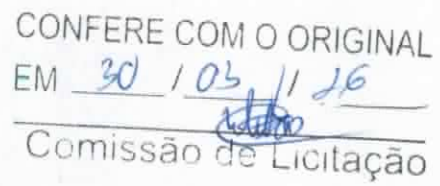 CONFERE COM O ORIGINAL
EM 30 / 03 / 26
Comissão de Licitação